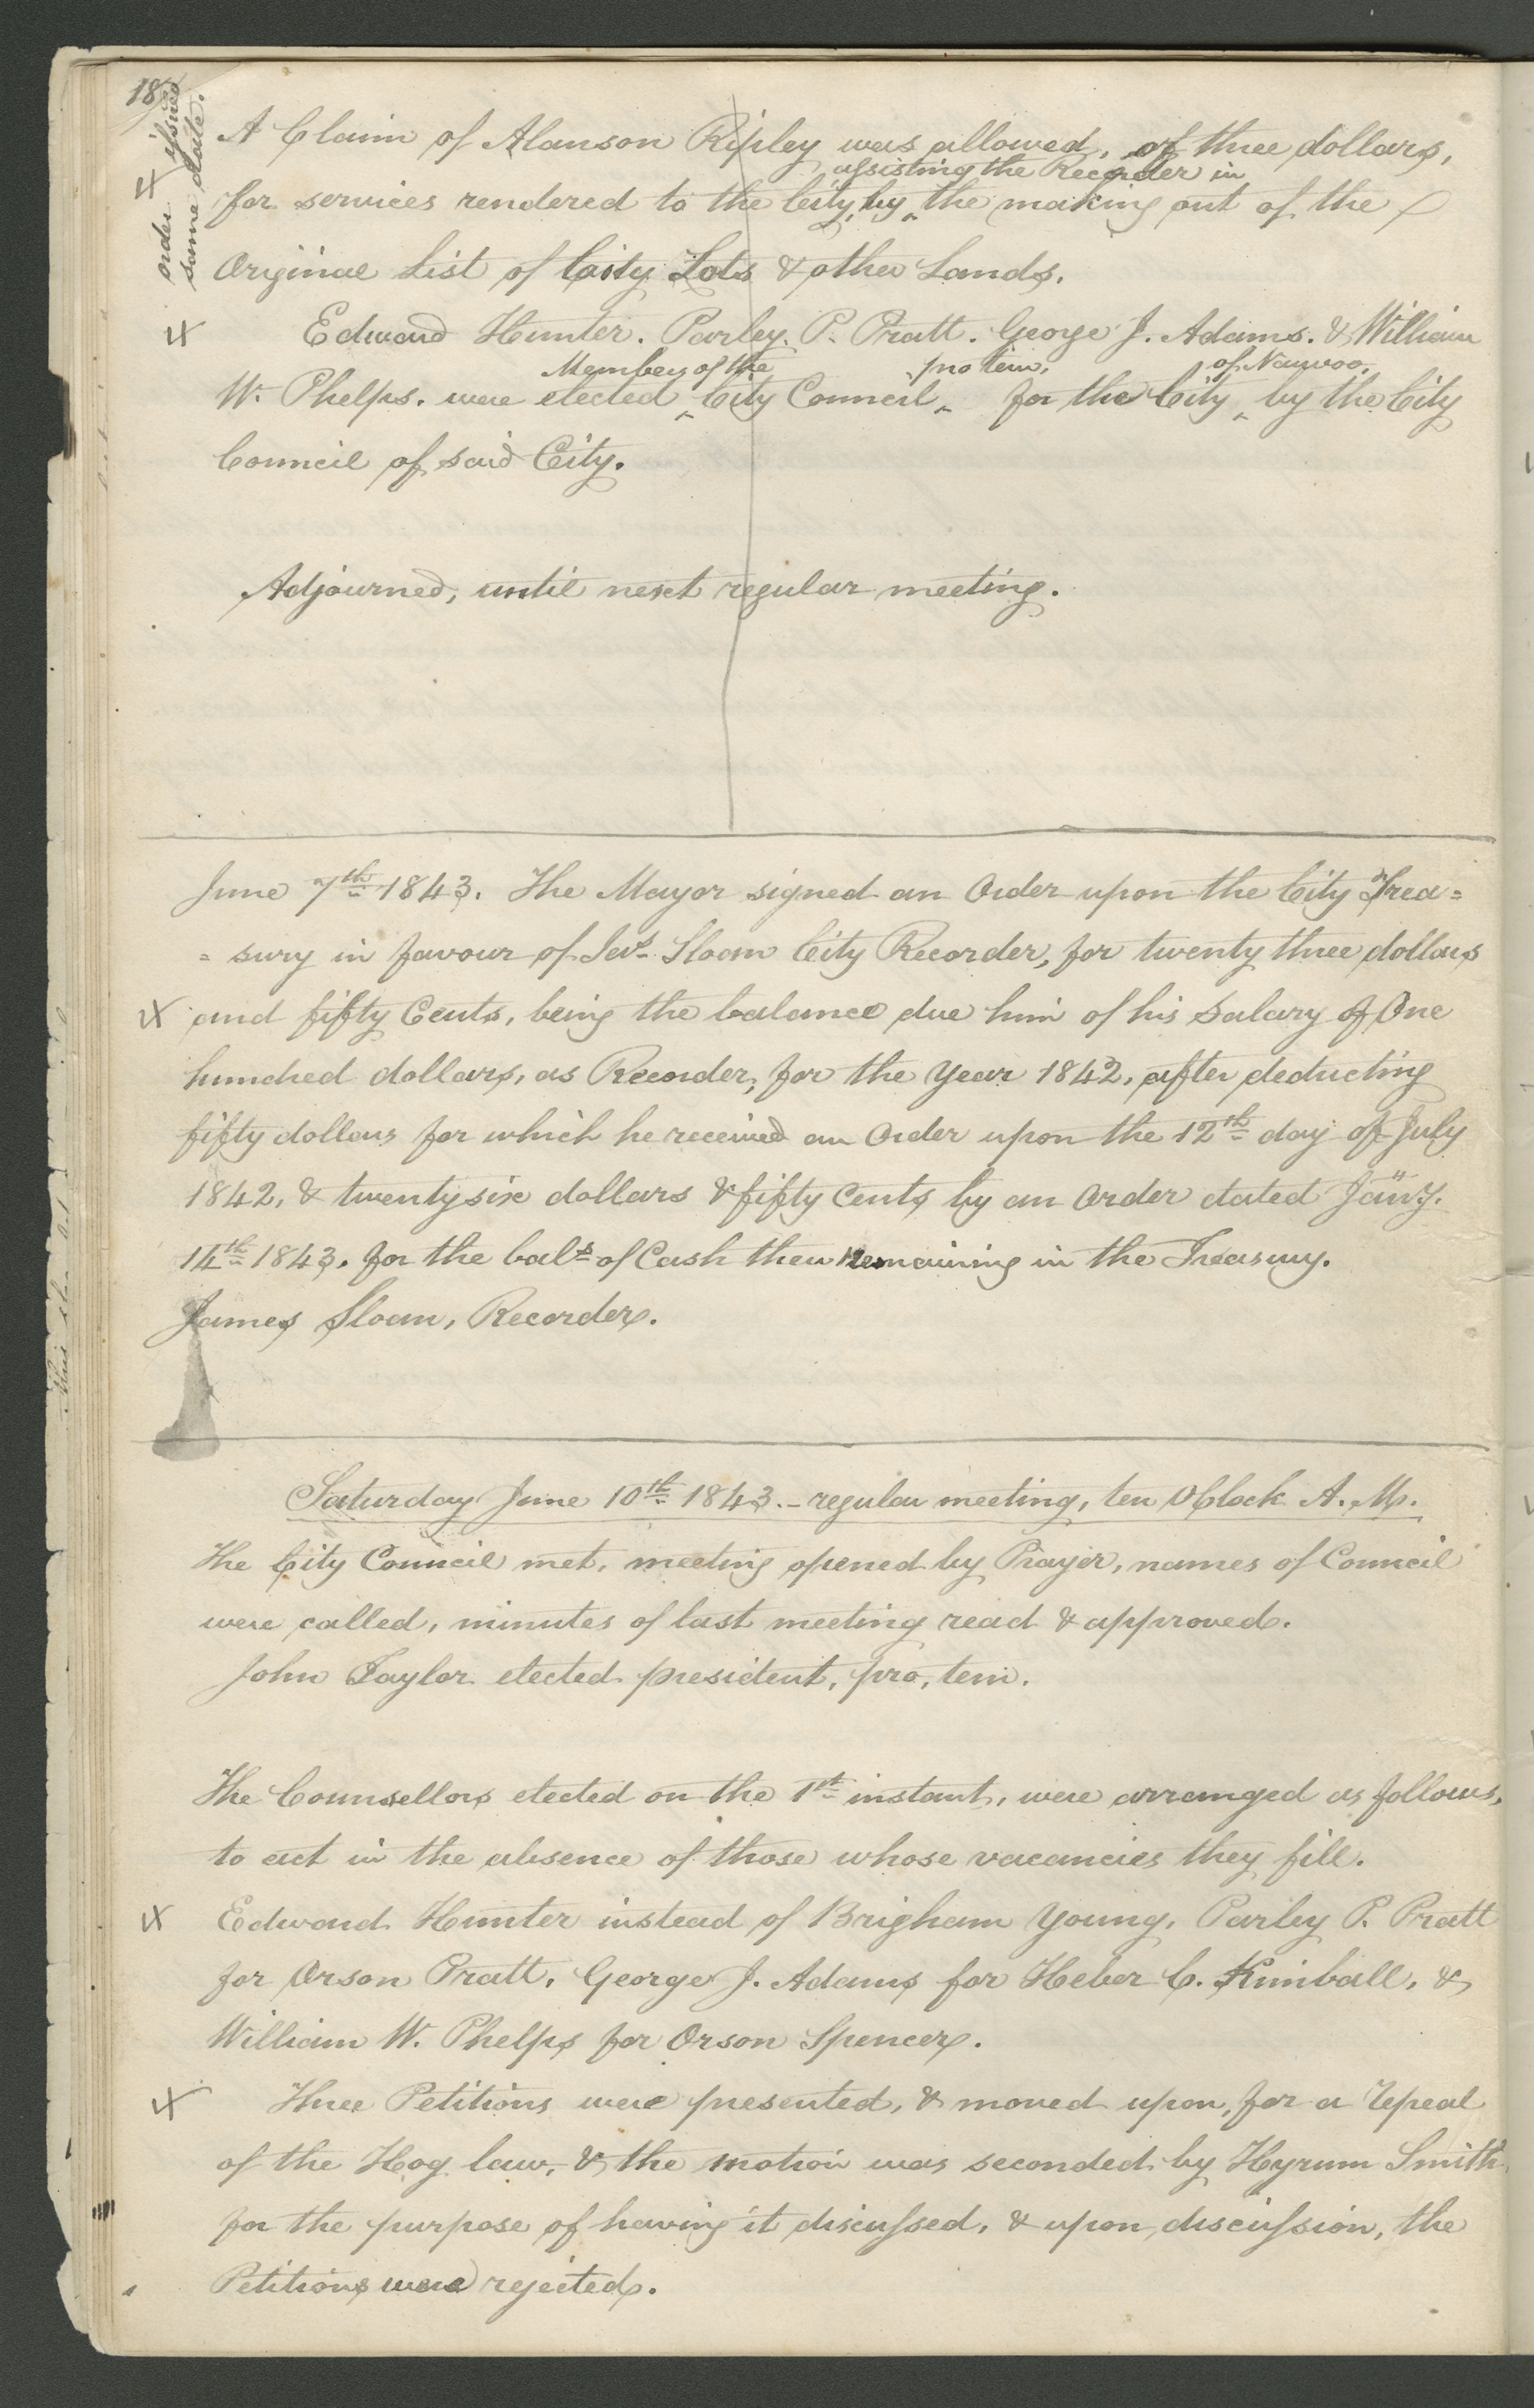 18
order issued
same date.
A Claim of Alanson Ripley was allowed, of three dollars,
assisting the Recorder in
for services rendered to the City, by ‸ the making out of the
Original List of City Lots & other Lands.
Edward Hunter. Parley. P. Pratt. George J. Adams. & William
Members of the pro tem, of Nauvoo,
W. Phelps. were elected ‸ City Council ‸ for the City ‸ by the City
Council of said City.
Adjourned, until next regular meeting.
June 7th 1843. The Mayor signed an Order upon the City Trea=
= sury in favour of Jas. Sloan City Recorder, for twenty three dollars
and fifty Cents, being the balance due him of his Salary of One
hundred dollars, as Recorder, for the Year 1842, after deducting
fifty dollars for which he received an Order upon the 12th day of July
1842, & twenty six dollars & fifty Cents by an Order dated Jany.
14th 1843. for the bals of Cash then remaining in the Treasury.
James Sloan, Recorder.
Saturday June 10th 1843. – regular meeting, ten OClock A. M.
The City Council met, meeting opened by Prayer, names of Council
were called, minutes of last meeting read & approved.
John Taylor elected president, pro, tem.
The Counsellors elected on the 1st instant, were arranged as follows,
to act in the absence of those whose vacancies they fill.
Edward Hunter instead of Brigham Young, Parley P. Pratt
for Orson Pratt, George J. Adams for Heber C. Kimball, &
William W. Phelps for Orson Spencer.
Three Petitions were presented, & moved upon, for a repeal
of the Hog law, & the motion was seconded by Hyrum Smith,
for the purpose of having it discussed, & upon discussion, the
Petitions were rejected.